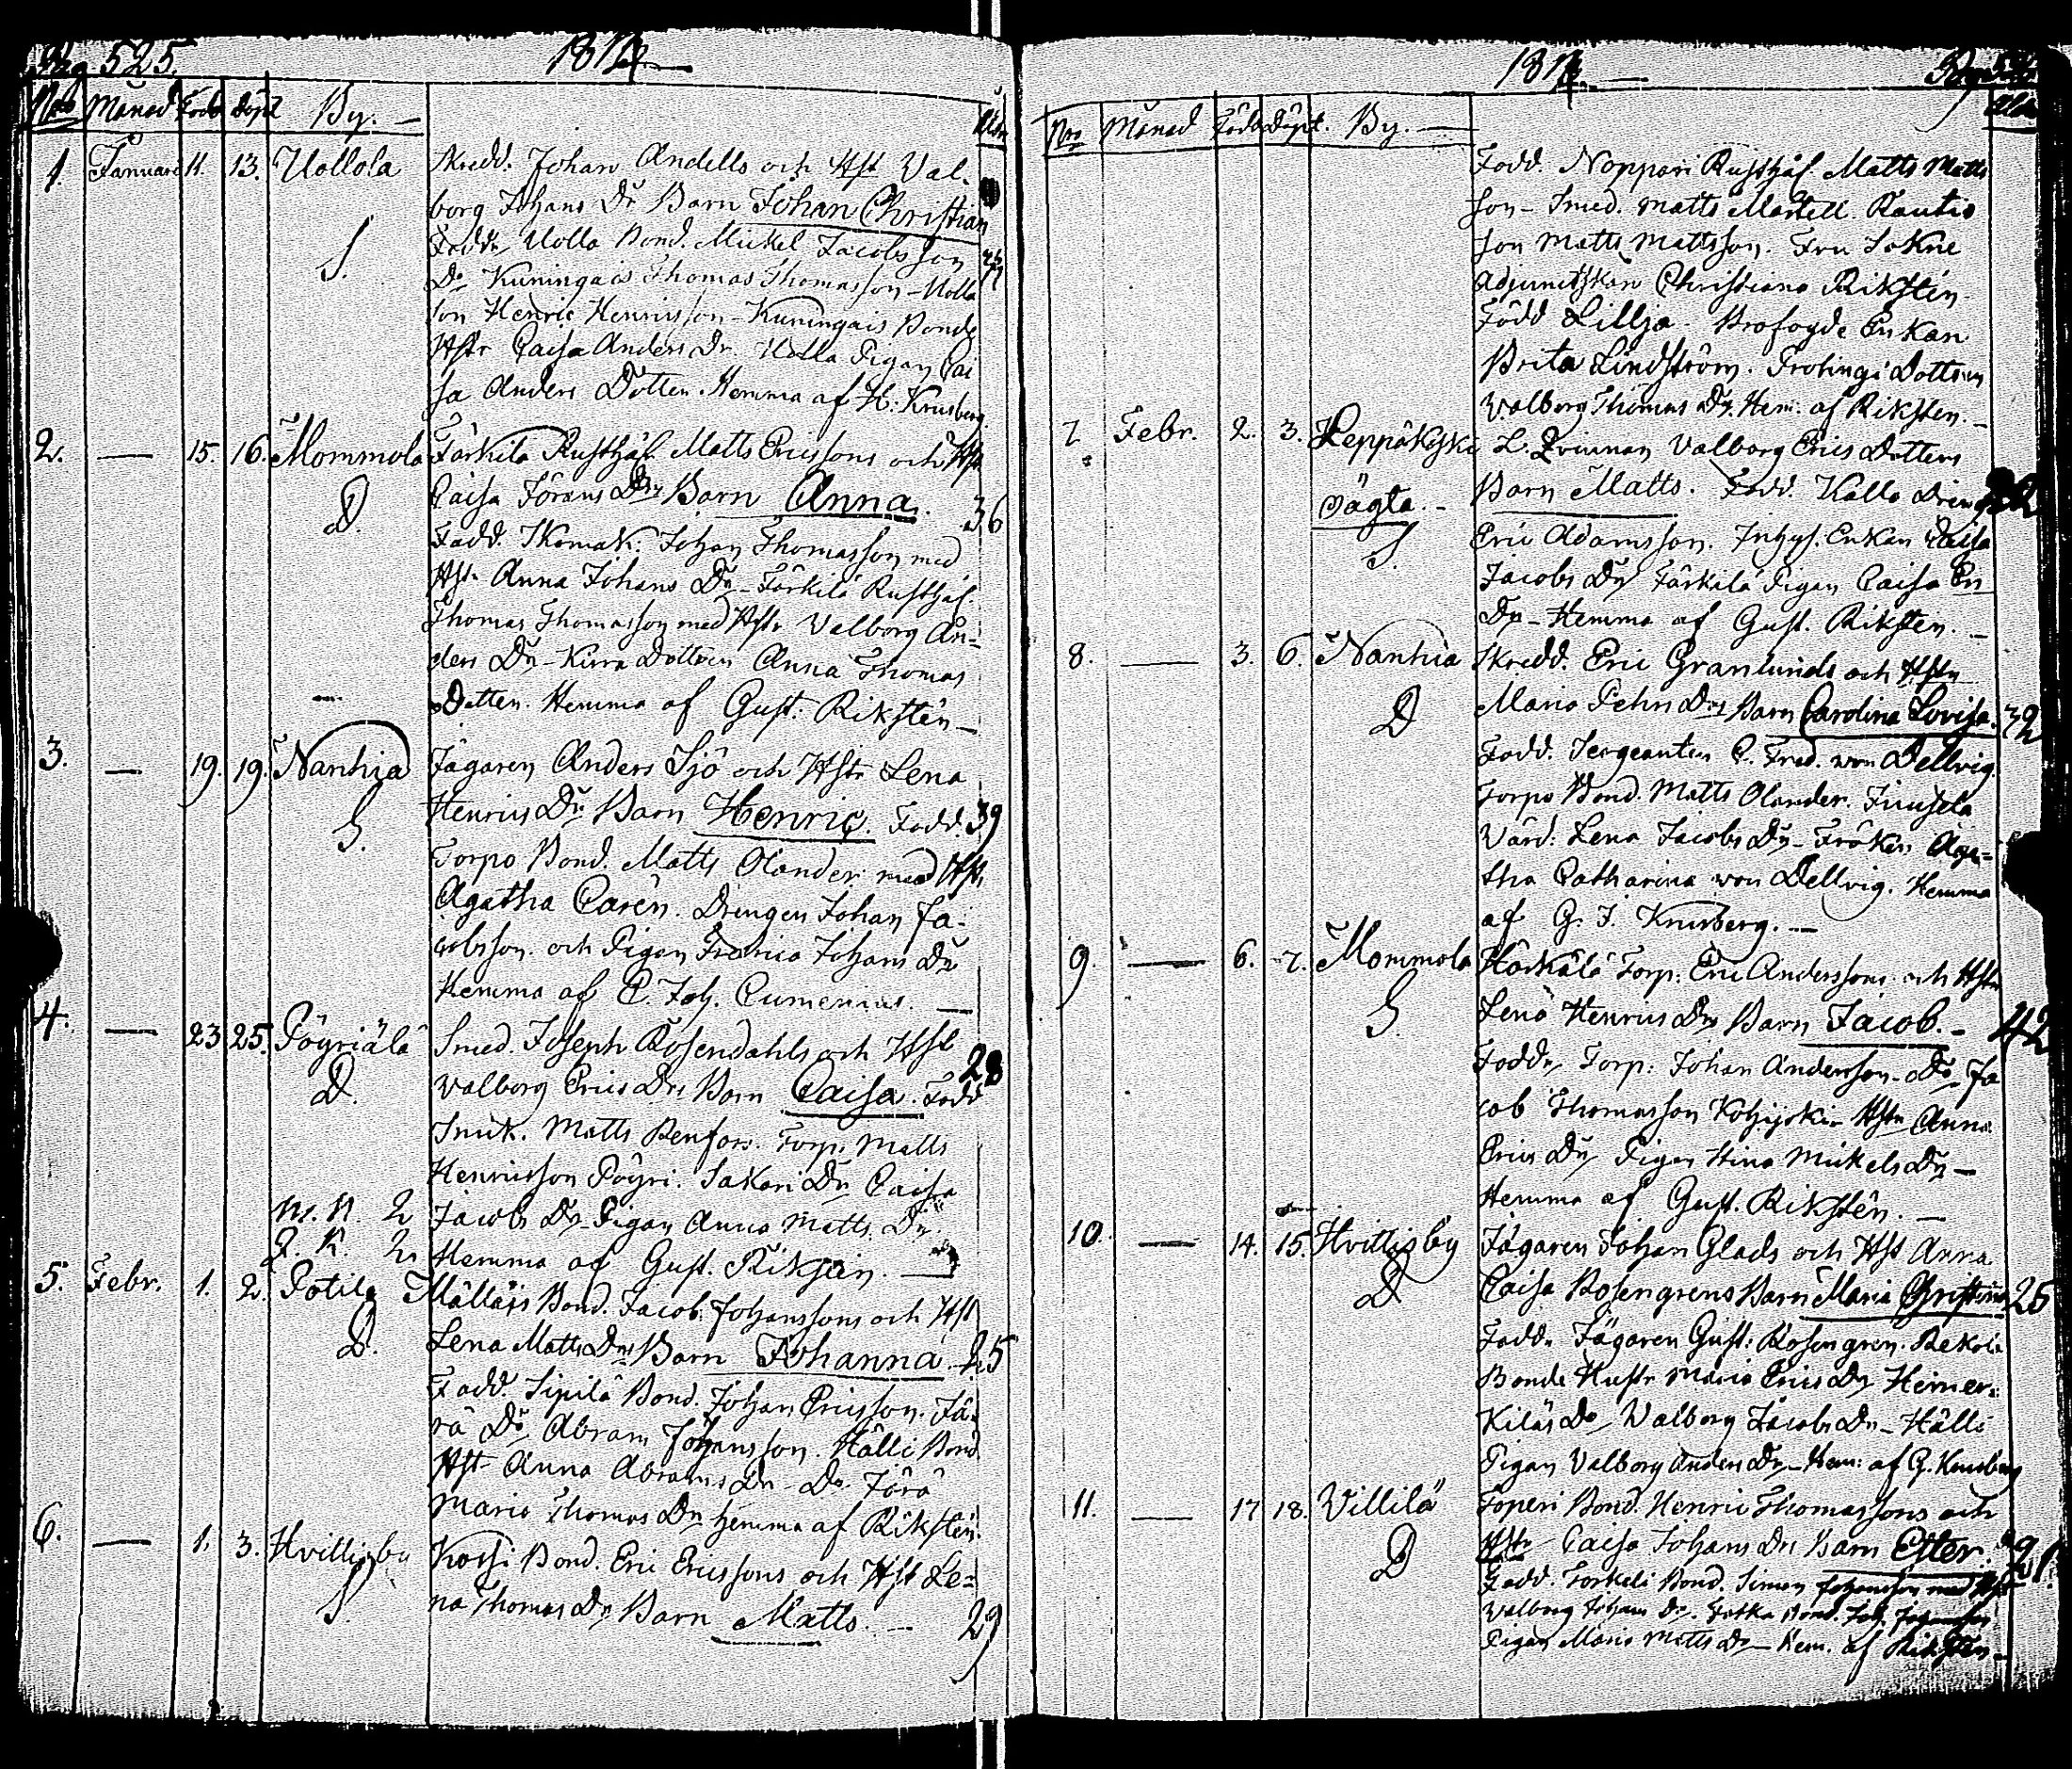 Pag 525.
1812
Nro Månad Född Döpt By. Åldr
1. Januari 11. 13. Uollola Skredd. Johan Andells och Hst Val-
borg Johans Dr Barn Johan Christian
S. Fadd. Uolla Bond. Mickel Jacobsson
Do Kuningais Thomas Thomasson - Uolla
son Henric Henricsson - Kuningais Bonde
Hstr Caisa Anders Dr. Uolla Pigan Cai
sa Anders Dotter. Hemma af H: Krusberg.
2. — 15. 16. Mommola Jårkilä Rusthål. Matts Ericssons och Hst
D. Caisa Jörans Drs Barn Anna. 36
Fadd. Skomak. Johan Thomasson med
Hstr Anna Johans Dr - Jårkilä Rusthål.
Thomas Thomasson med Hstr Valborg An-
ders Dr - Kirra Dottren Anna Thomas
Dotter. Hemma af Gust: Rikstén —
3. — 19. 19. Nanhia Jägaren Anders Sjö och Hstr Lena
Henrics Drs Barn Henric. Fadd. 39
S. Torpo Bond. Matts Olander med Hstr
Agatha Carén. Drengen Johan Ja-
cobsson och Pigan Fredrica Johans Dr
Hemma af C. Joh. Cumenius. —
4. — 23 25. Pöyriälä Smed. Joseph Rosendahls och Hst 28
D. Valborg Erics Drs Barn Caisa. Fadd
Smek. Matts Renfors. Torp. Matts
Henricsson Pöyri. Sakari Dr Caisa
M. N. 2 Jacobs Dr - Pigan Anna Matts Dr.
Q. K. 2 Hemma af Gust. Rikstén. —
5. Febr. 1. 2. Potila Mälläis Bond. Jacob Johanssons och Hst
D. Lena Matts Drs Barn Johanna. 25
Fadd. Sipilä Bond. Johan Ericsson. Jä-
rä Do Abram Johansson. Hälli Bond
Hst Anna Abrams Dr - Do Jörä
Maria Thomas Dr hemma af Rikstén.
6. — 1. 3. Hvittisby Kossi Bond. Eric Ericssons och Hst Le-
S. na Thomas Drs Barn Matts. — 29
1812
Nro Månad Född Döpt. By. — Åldr
Fadd. Noppari Rusthål. Matts Matts
son - Smed. Matts Martell. Rautio
son Matts Mattsson. Fru Sokne
Adjunctskan Christiana Rikstén
Född Lillja. Brofogde Enkan
Brita Lindström. Prohingi Dottren
Valborg Thomas Dr. Hem: af Rikstén. —
7 Febr. 2. 3. Keppåkoski L. Qvinnan Valborg Erics Dotters
Barn Matts. Fadd. Kallo Dreng
S. Eric Adamsson. Inhys. Enkan Caisa
Jacobs Dr Jårkilä Pigan Caisa Er
Dr - Hemma af Gust. Rikstén. —
8. — 3. 6. Nanhia Skredd. Eric Granlunds och Hstr
D Maria Pehrs Drs Barn Carolina Lovisa. 32
Fadd. Sergeanten C. Fred. von Dellvig.
Torpo Bond. Matts Olander.
Värd: Lena Jacobs Dr - Fröken Aga-
tha Catharina von Dellvig. Hemma
af G. J. Krusberg. —
9. — 6. 7. Mommola Torp. Eric Anderssons och Hstr
S. Lena Henrics Drs Barn Jacob. — 42
Fadd. Torp: Johan Andersson - Do Ja
cob Thomasson Kohijoki - Hstr Anna
Erics Dr Pigan Stina Mickels Dr —
Hemma af Gust. Rikstén. —
10. — 14. 15. Hvittisby Jägaren Johan Glads och Hst Anna
D Caisa Rosengrens Barn Maria Christina 25
Fadd. Jägaren Gust: Rosengren. Rekola
Bonde Hustr Maria Erics Dr Heimer-
Kiläs Do Valborg Jacobs Dr - Hälli
Pigan Valborg Anders Dr - Hem: af G. Krusberg
11. — 17 18. Villilä Toperi Bond. Henric Thomassons och
D Hstr Caisa Johans Drs Barn Ester. 21.
Fadd. Torkeli Bond. Simon Johansson med Hst
Valborg Johans Dr. Bond. Joh.
Pigan Maria Matts Dr - Hem. af Rikstén —